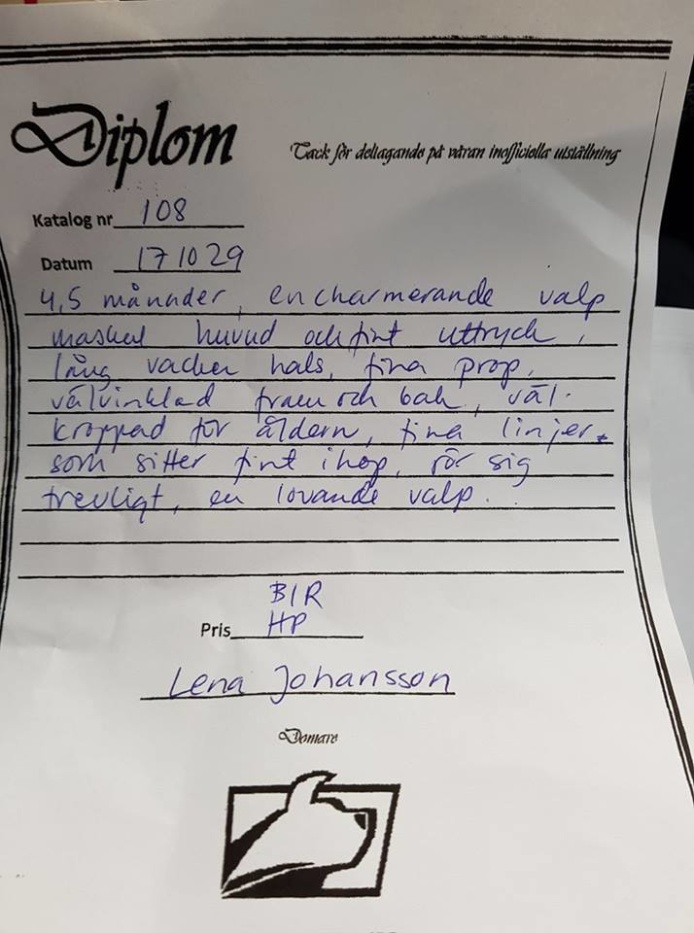 Diplom
Tack för deltagande på våran inofficiella utställning
Katalog nr 108
Datum 171029
4,5 månader, en charmerande valp
maskul huvud och fint uttryck,
lång vacker hals, fina prop,
välvinklad fram och bak, väl-
kroppad för åldern, fina linjer
som sitter fint ihop, rör sig
trevligt, en lovande valp.
BIR
Pris HP
Lena Johansson
Domare